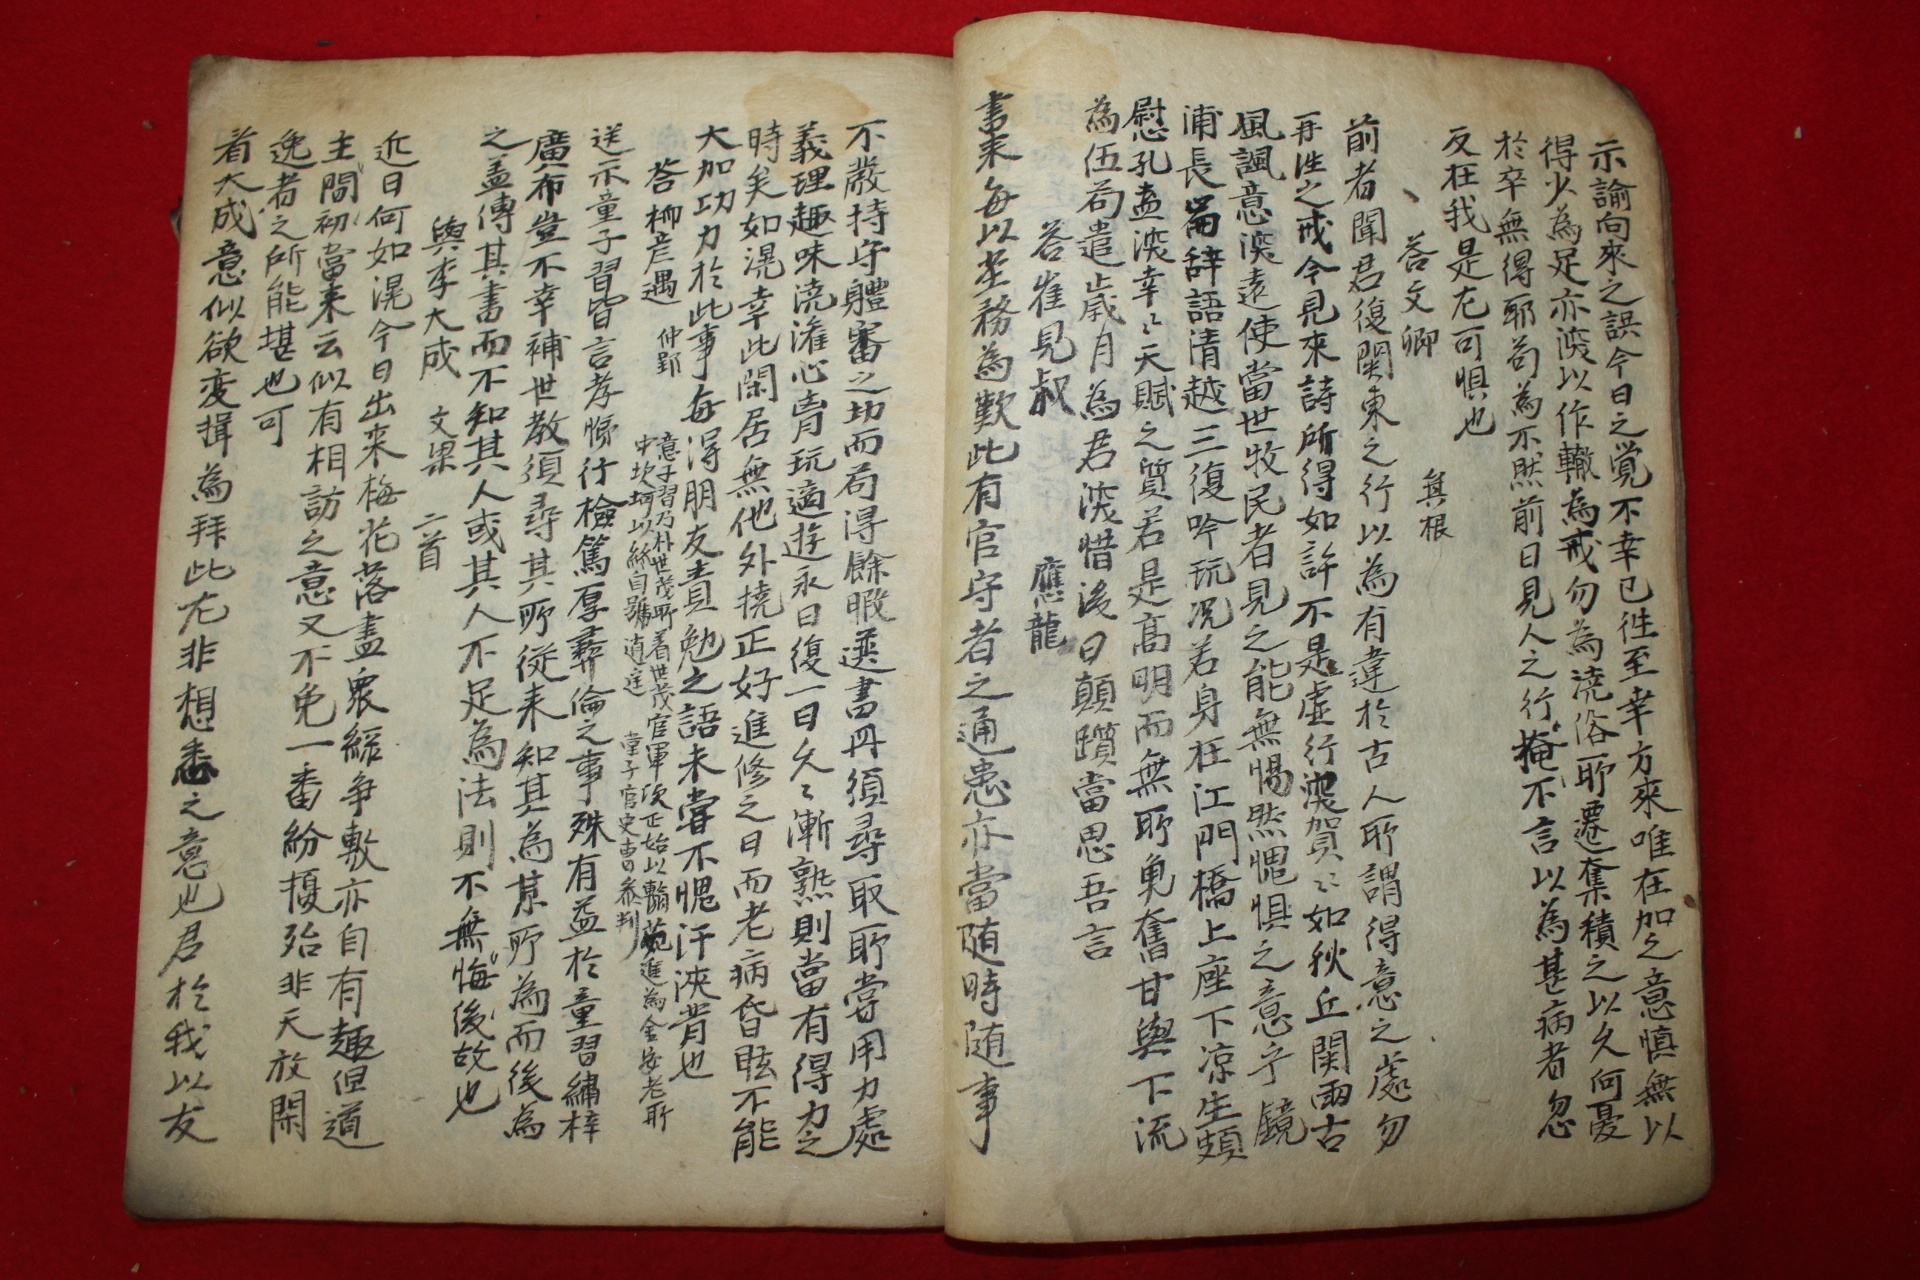 示諭向來之誤今日之覺不幸已徃至幸方來唯在加之意慎無以
得少為足亦深以作轍為戒勿為澆俗所遷奪積之以久何憂
於卒無得耶苟為不然前日見人之行掩不言以為甚病者忽
反在我是尤可惧也
答文卿 箕根
前者聞君復関東之行以為有違於古人所謂得意之處勿
再徃之戒今見來詩所得如許不是虛行深賀〻如秋丘関雨古
風諷意深遠使當世牧民者見之能無惕然愧惧之意乎鏡
浦長篇辞語清越三復吟玩况若身在江門橋上座下凉生頰
慰孔盡深幸〻天賦之質若是高明而無所奮甘與下流
為伍苟遣歲月為君深惜後日顛躓當思吾言
答崔見叔 應龍
書來每以坐務為歎此有官守者之通患亦當随時随事
不嚴持守軆審之功而苟得餘暇選書冊須尋取所嘗用力處
義理趣味澆灌心胷玩適遊永日復一日久〻漸熟則當有得力之
時矣如滉幸此閑居無他外撓正好進修之日而老病昏眩不能
大加功力於此事每得朋友責勉之語未嘗不愧汗浹背也
答柳彦遇 仲郢
意子習乃朴世茂所着世茂官軍資正始以翰苑進為金安老所
中坎坷以終自號逍遥 童子官史曺參判
送示童子習皆言孝悌行檢篤厚彛倫之事殊有益於童習繡梓
廣布豈不幸補世教須尋其所從来知其為某所為而後為
之盖傳其書而不知其人或其人不足為法則不無悔後故也
與李大成 文果 二首
近日何如滉今日出来梅花落盡衆緑争敷亦自有趣但道
主間初當来云似有相訪之意又不免一番紛擾殆非天放閑
逸者之所能堪也可
看大成意似欲変揖為拜此尤非想悉之意也君於我以友